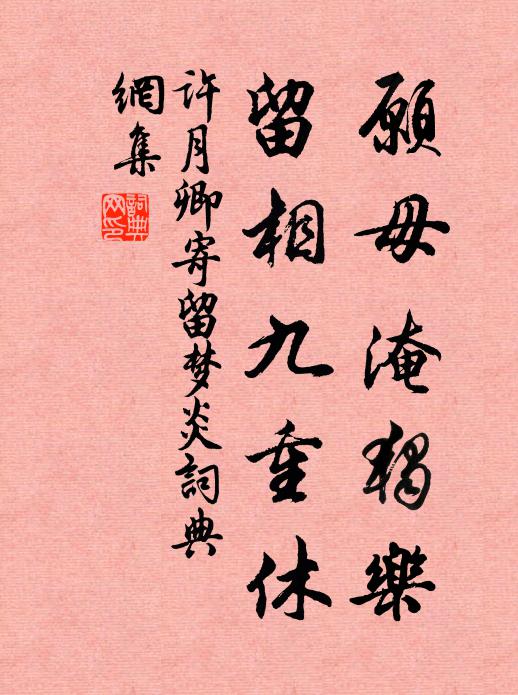 願毋淹獨樂
留相九重休
許月卿寄留梦炎詞典
網集
詞典網印